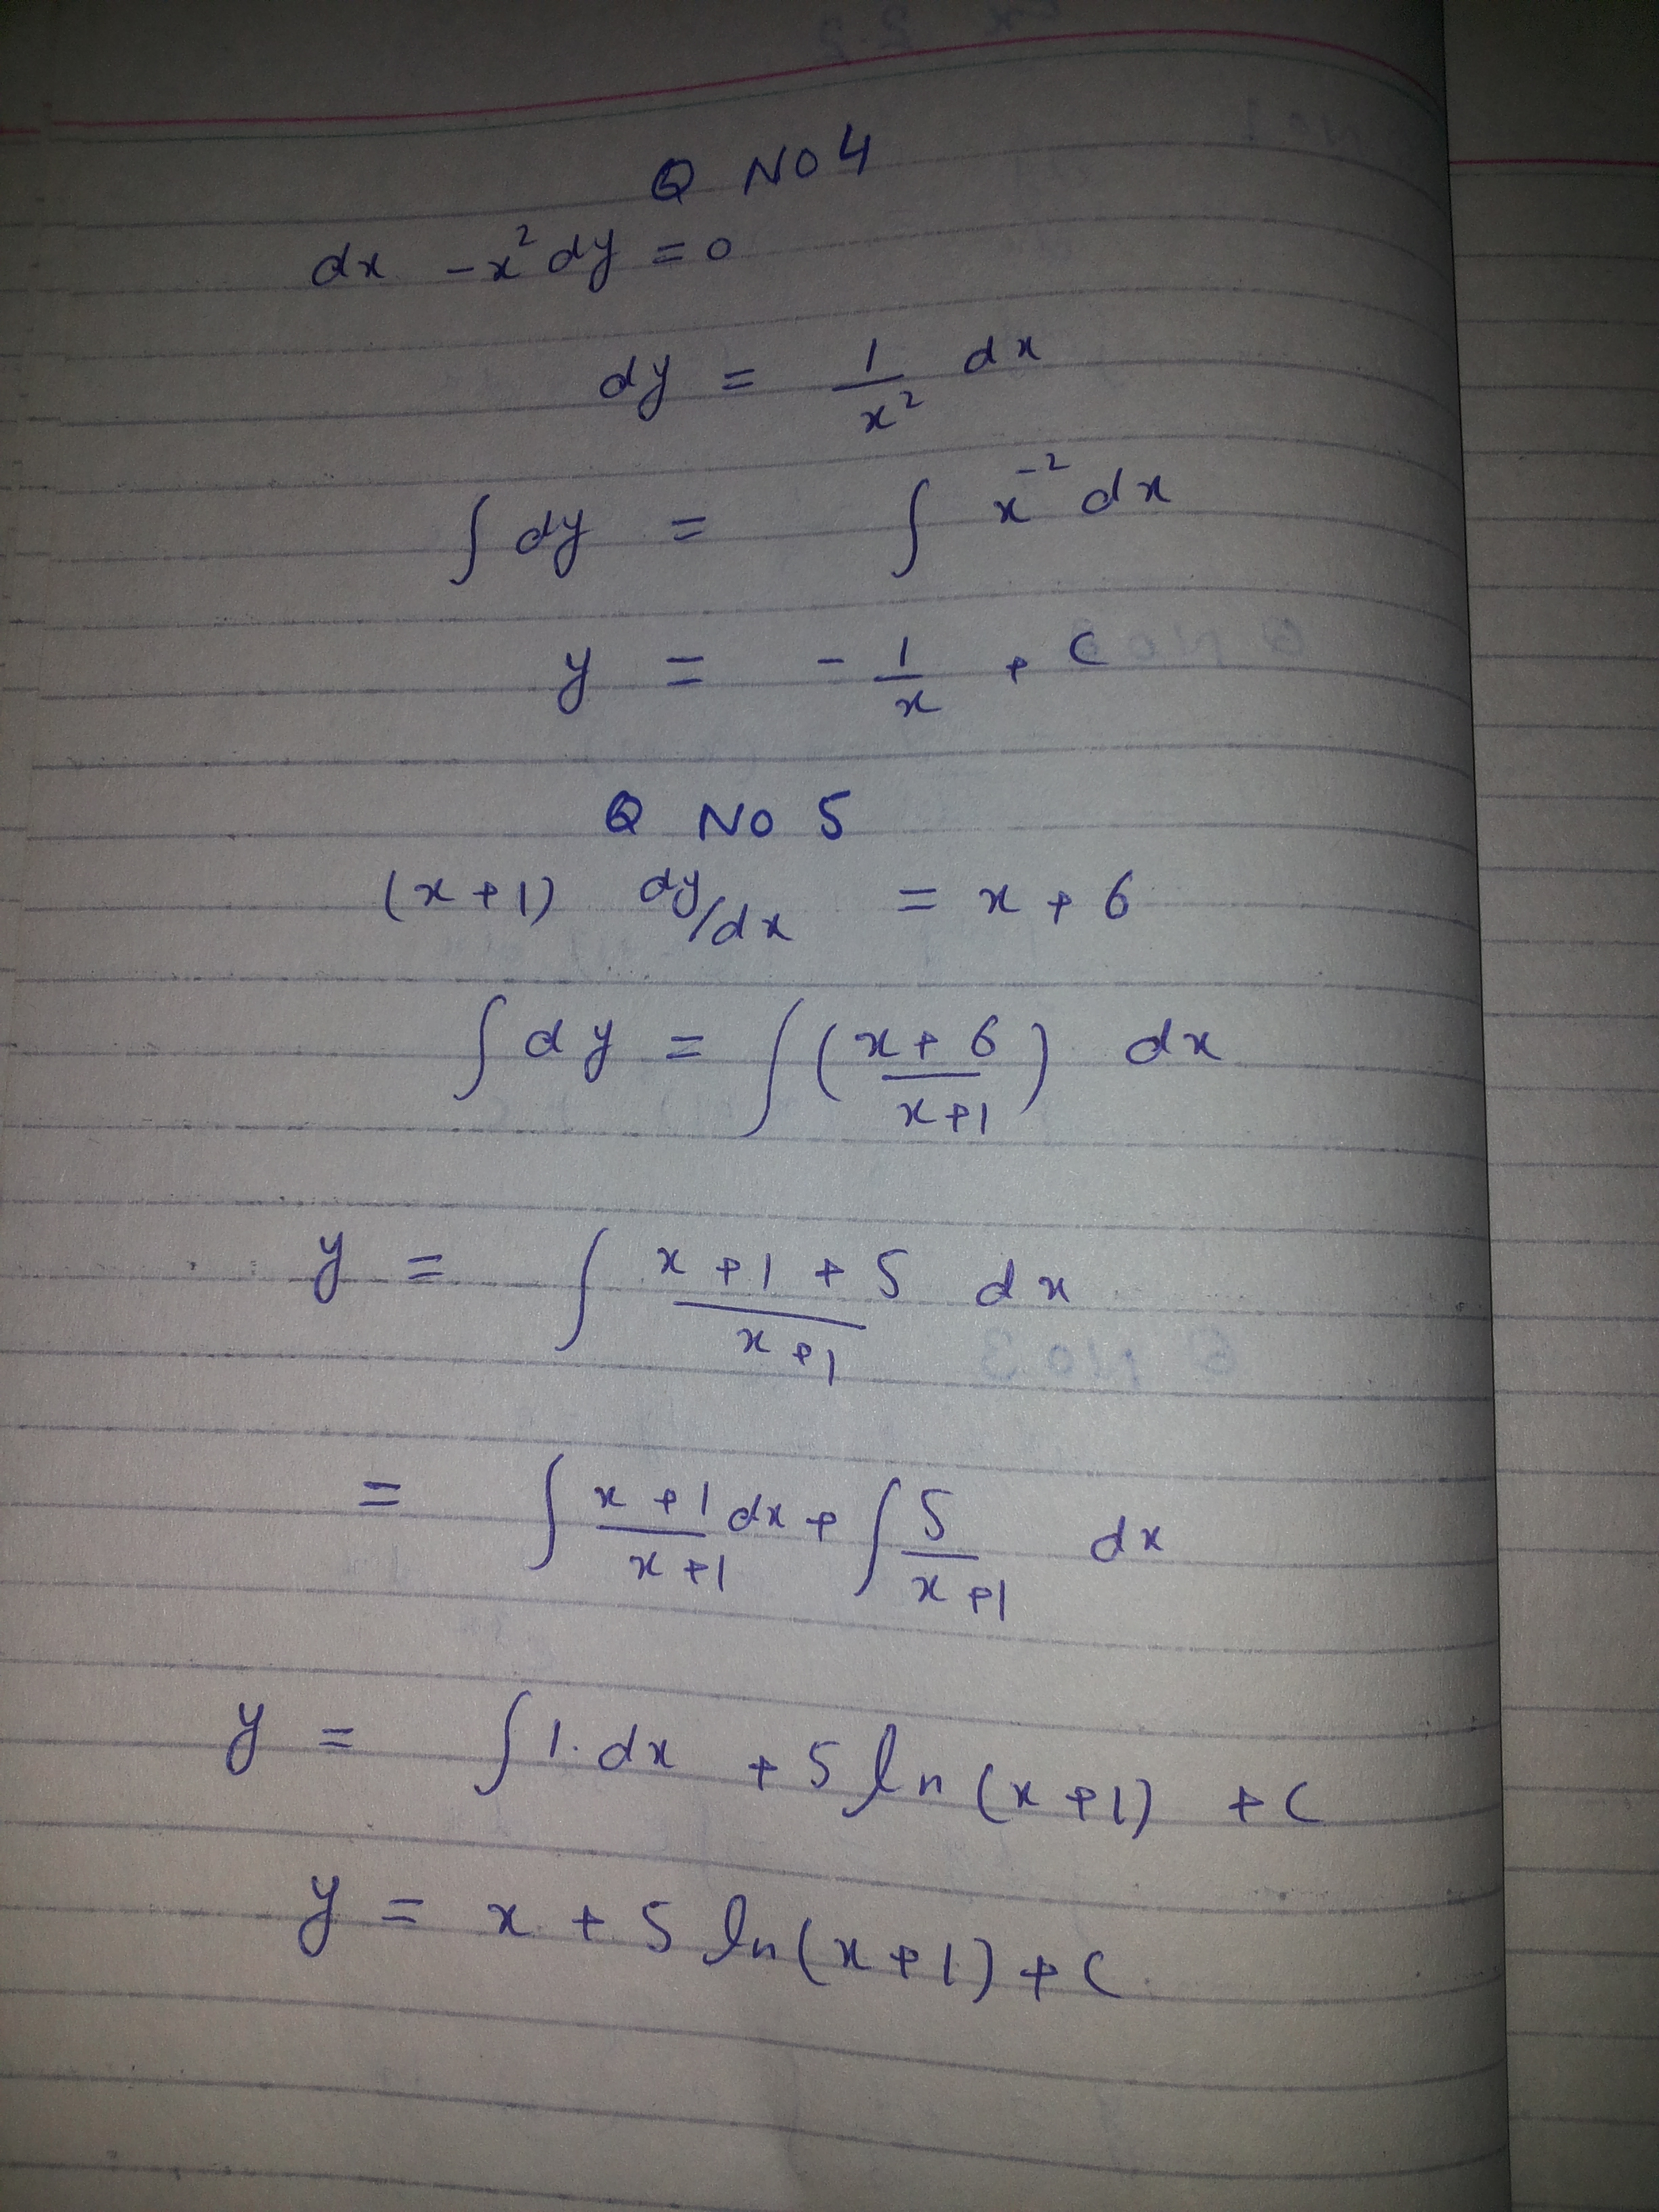 Q NO 4
dx - x² dy = 0
dy = 1/x² dx
∫ dy = ∫ x⁻² dx
y = - 1/x + C
Q NO 5
(x+1) dy/dx = x + 6
∫ dy = ∫ (x+6/x+1) dx
y = ∫ x+1+5/x+1 dx
= ∫ x+1/x+1 dx + ∫ 5/x+1 dx
y = ∫ 1. dx + 5 ln (x+1) + C
y = x + 5 ln (x+1) + C